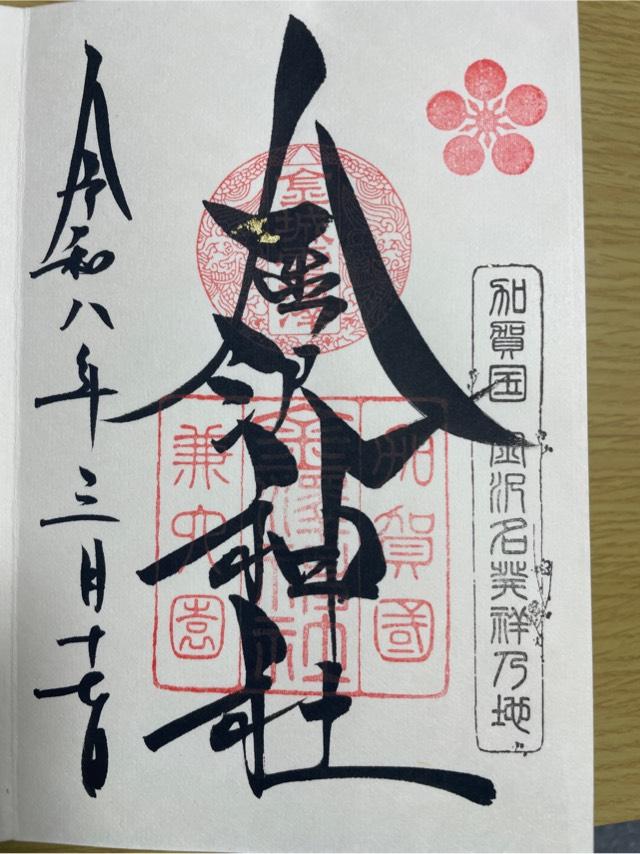 加賀国 金沢名発祥乃地
金澤神社
金城
加賀國
金澤神社
兼六園
令和八年三月十七日